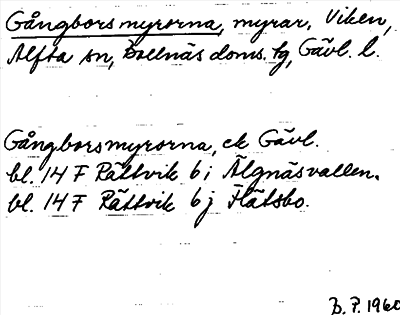 Gångborsmyrorna, myrar, Viken,
Alfta sn, Bollnäs doms. hg, Gävl. l.
Gångborsmyrorna, ek Gävl.
bl. 14 F Rättvik 6 i Älgnäsvallen.
bl. 14 F Rättvik 6 j Flätsbo.
B. P. 1960